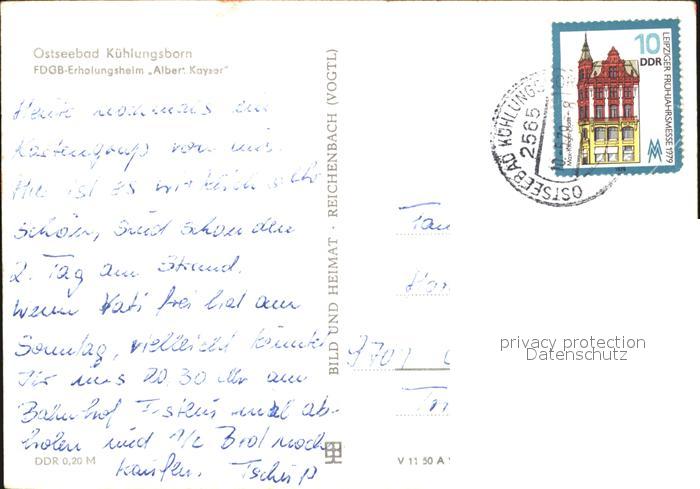 Ostseebad Kühlungsborn
FDGB-Erholungsheim „Albert Kayser"
Heute nochmals ein
Kartengruß von mir.
Hier ist es wirklich sehr
schön, sind schon den
2. Tag am Strand.
Wenn Vati frei hat am
Sonntag, vielleicht könntet
Ihr uns 20.30 Uhr am
Bahnhof ab-
holen und 1/2 Brot noch
kaufen. Tschüß
DDR 0,20 M
BILD UND HEIMAT · REICHENBACH (VOGTL)
V 11 50 A
10
DDR
LEIPZIGER FRÜHJAHRSMESSE 1979
OSTSEEBAD KÜHLUNGS
2565
privacy protection
Datenschutz